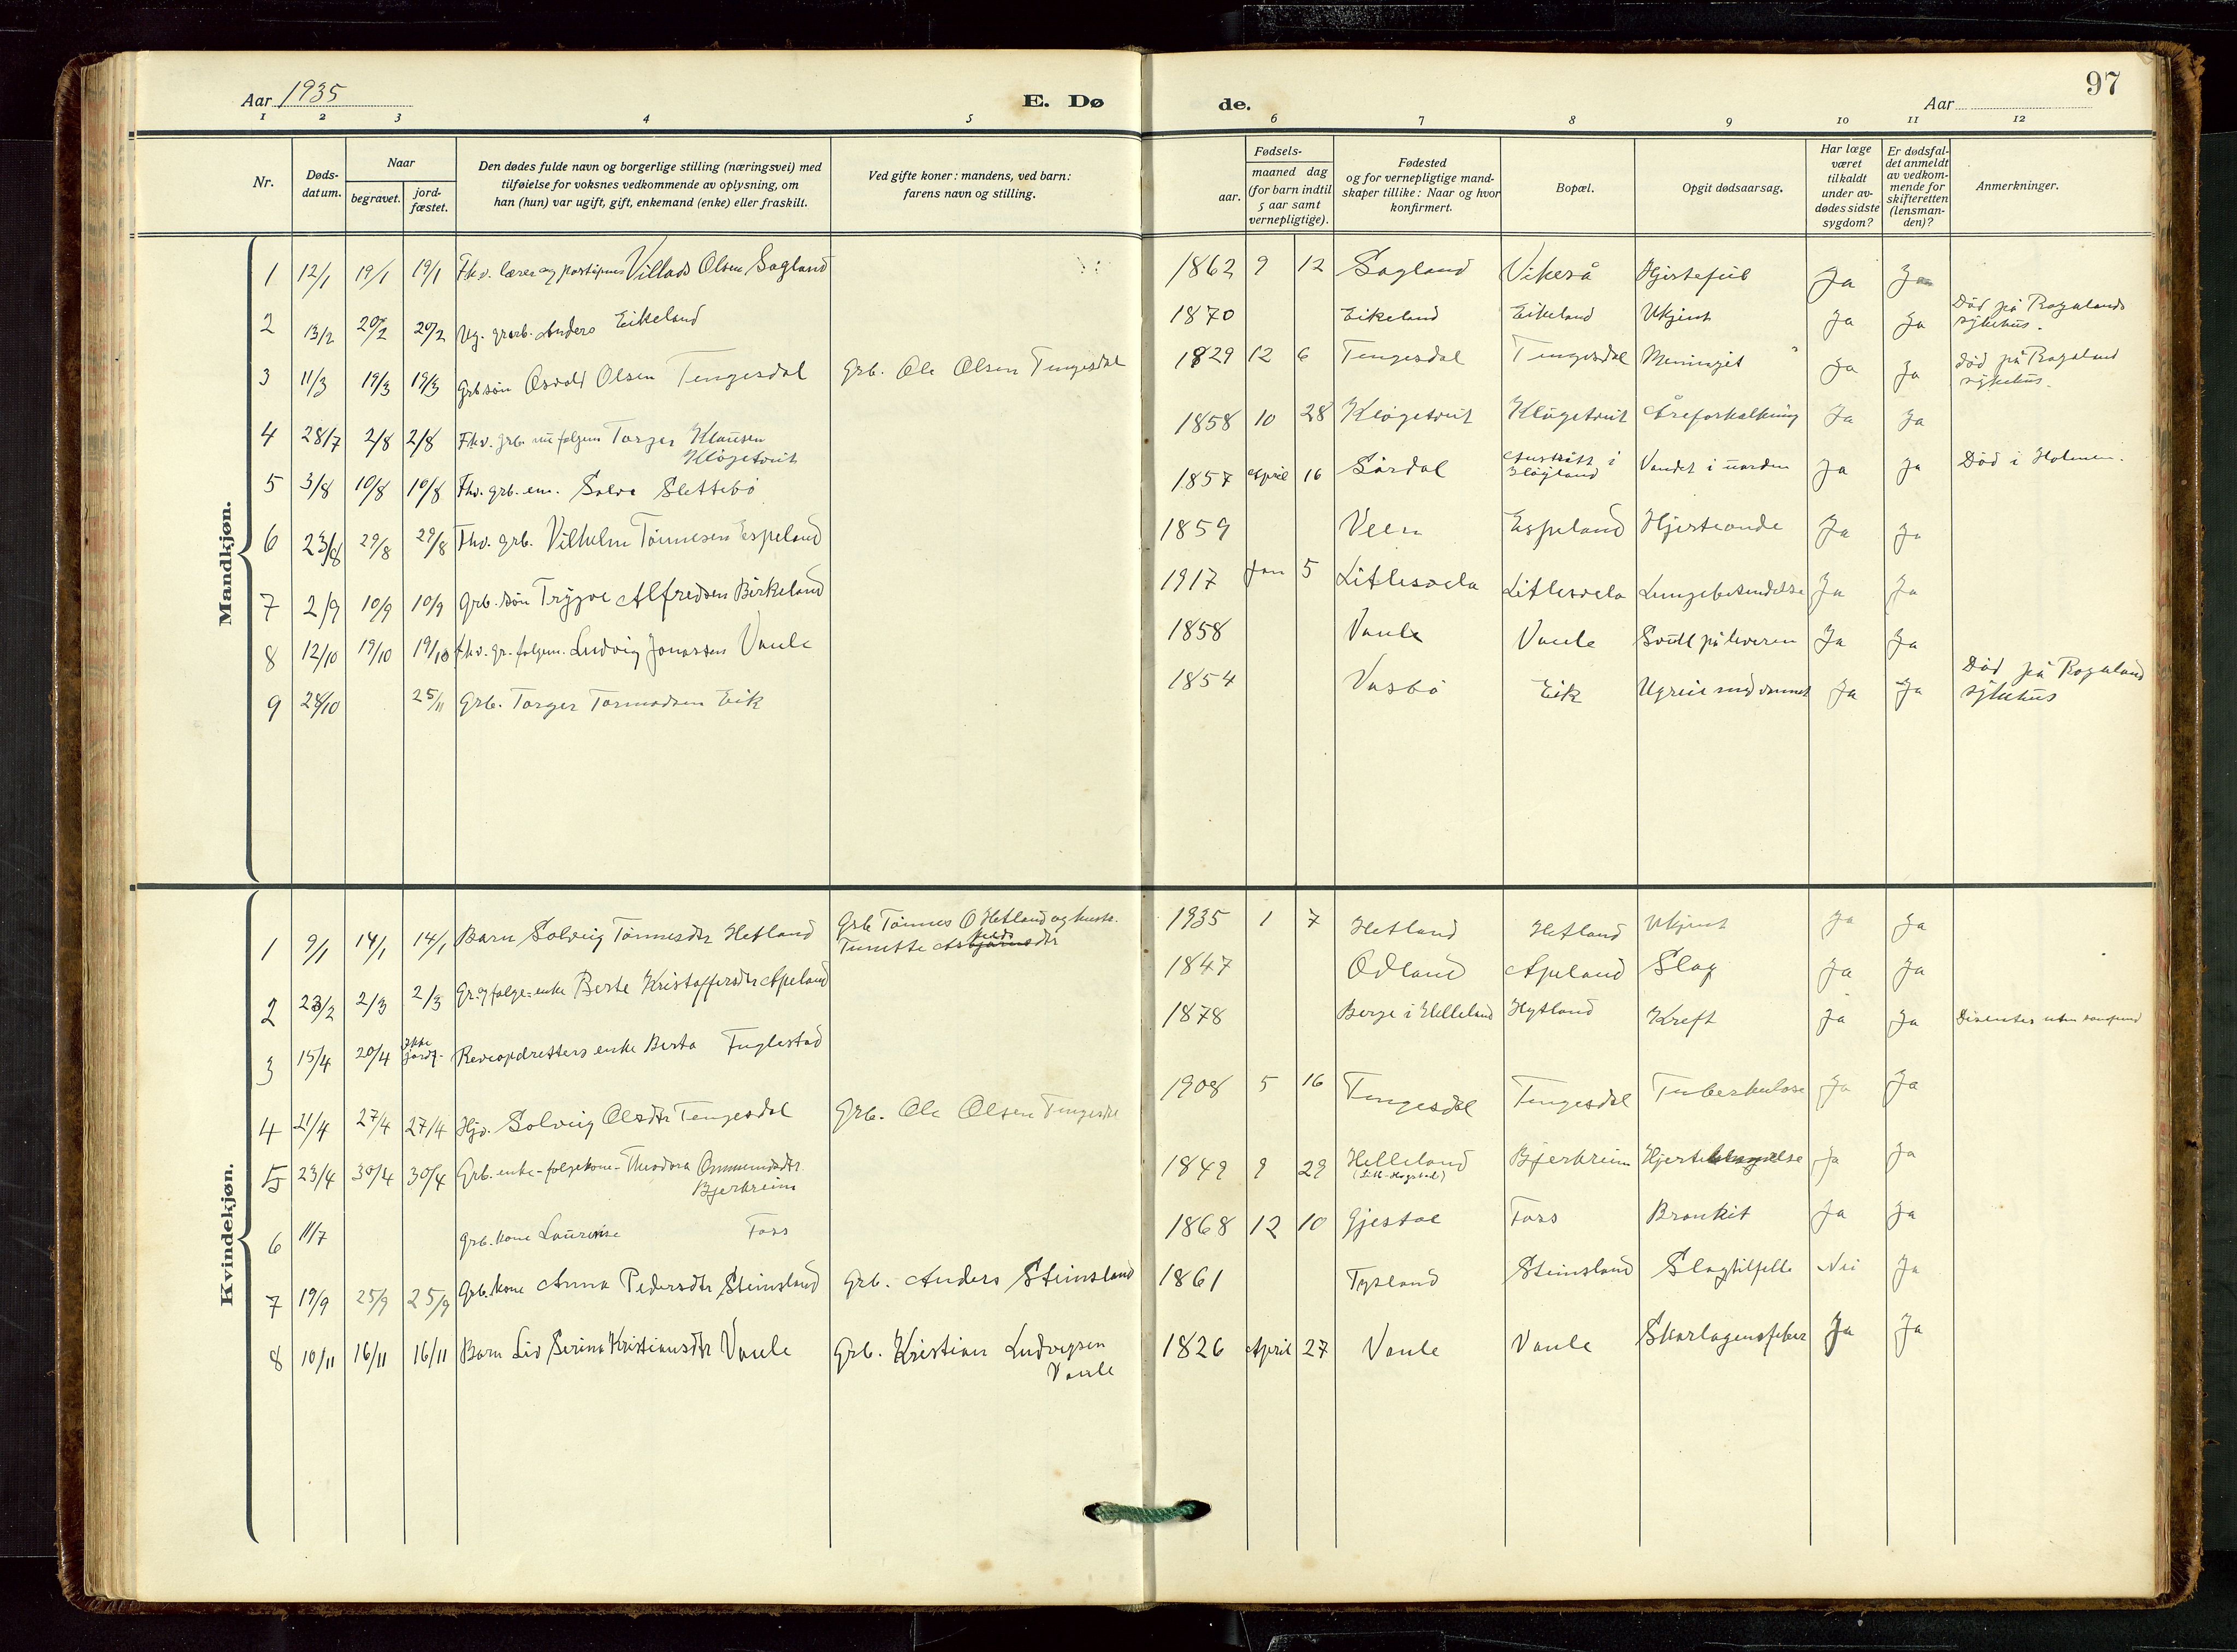 Aar 1935
E. Dø
de.
97
Aar
1 2 3 4 5 6 7 8 9 10 11 12
Nr.
Døds-
datum.
Naar
begravet.
jord-
fæstet.
Den dødes fulde navn og borgerlige stilling (næringsvei) med
tilføielse for voksnes vedkommende av oplysning, om
han (hun) var ugift, gift, enkemand (enke) eller fraskilt.
Ved gifte koner: mandens, ved barn:
farens navn og stilling.
Fødsels-
aar.
maaned dag
(for barn indtil
5 aar samt
vernepligtige).
Fødested
og for vernepligtige mand-
skaper tillike: Naar og hvor
konfirmert.
Bopæl.
Opgit dødsaarsag.
Har læge
været
tilkaldt
under av-
dødes sidste
sygdom?
Er dødsfal-
det anmeldt
av vedkom-
mende for
skifteretten
(lensman-
den)?
Anmerkninger.
Mandkjøn.
1 12/1 19/1 19/1 Fhv. lærer og Villads Olsen Sagland 1862 9 12 Sagland Vikeså Ja Ja
2 13/2 20/2 20/2 Ug. Anders Eikeland 1870 Eikeland Eikeland Ukjent Ja Ja Död på Rogalands
sykehus.
3 11/3 19/3 19/3 Grb. sön Olsen Tengesdal Grb. Ole Olsen Tengesdal 1829 12 6 Tengesdal Tengesdal Ja Ja död på Rogaland
sykehus.
4 28/7 2/8 2/8 Fhv. grb. nu folgem Torger Klausen
Klögetveit 1858 10 28 Klögetveit Klögetveit Åreforkalkning Ja Ja
5 3/8 10/8 10/8 Fhv. grb. em. Salve Slettebö 1857 April 16 Sördal i
Högland Vandet i uorden Ja Ja Död i Holmen.
6 23/8 29/8 29/8 Fhv. grb. Vilhelm Tönnesen Espeland 1859 Veen Espeland Hjerteonde Ja Ja
7 2/9 10/9 10/9 Grb. sön Trygve Alfredsen Birkeland 1917 Jan 5 Litlesvela Litlesvela Lungebetendelse Ja Ja
8 12/10 19/10 19/10 fhv. gr. folgem. Ludvig Jonassen Vaule 1858 Vaule Vaule Svull på leveren Ja Ja
9 24/10 25/11 Grb. Torger Tormodsen Eik 1854 Vasbö Eik Ugreie med vannet Ja Ja Död på Rogaland
sykehus
Kvindekjøn.
1 9/1 14/1 14/1 Barn Solveig Tönnesdtr Hetland Grb Tönnes O Hetland og hustr.
Tunette 1935 1 7 Hetland Hetland Ukjent Ja Ja
2 23/2 2/3 2/3 Gr. og folge-enke Berte Kristoffersdtr Apeland 1847 Odland Apeland Slag Ja Ja
3 15/4 20/4 ikke
jordf. Reveopdretters enke Berta Fuglestad 1878 Berge i Helleland Hytland Kreft Ja Ja Disenter uten samfund
4 21/4 27/4 27/4 Hjv. Solveig Olsdtr Tengesdal Grb. Ole Olsen Tengesdal 1908 5 16 Tengesdal Tengesdal Tuberkulose Ja Ja
5 23/4 30/4 30/4 Grb. enke-folgekone- Theodora Ommundsdtr
Bjerkreim 1849 9 29 Helleland Bjerkreim Ja Ja
6 11/7 Grb. kone Laurense Foss 1868 12 10 Gjestae Foss Bronkit Ja Ja
7 19/9 25/9 25/9 Grb. kone Anna Pedersdtr Steinsland Grb. Anders Steinsland 1861 Tysland Steinsland Slagtilfelle Nei Ja
8 10/11 16/11 16/11 Barn Liv Serina Kristiansdtr Vaule Grb. Kristian Ludvigsen
Vaule 1826 April 27 Vaule Vaule Skarlagensfeber Ja Ja